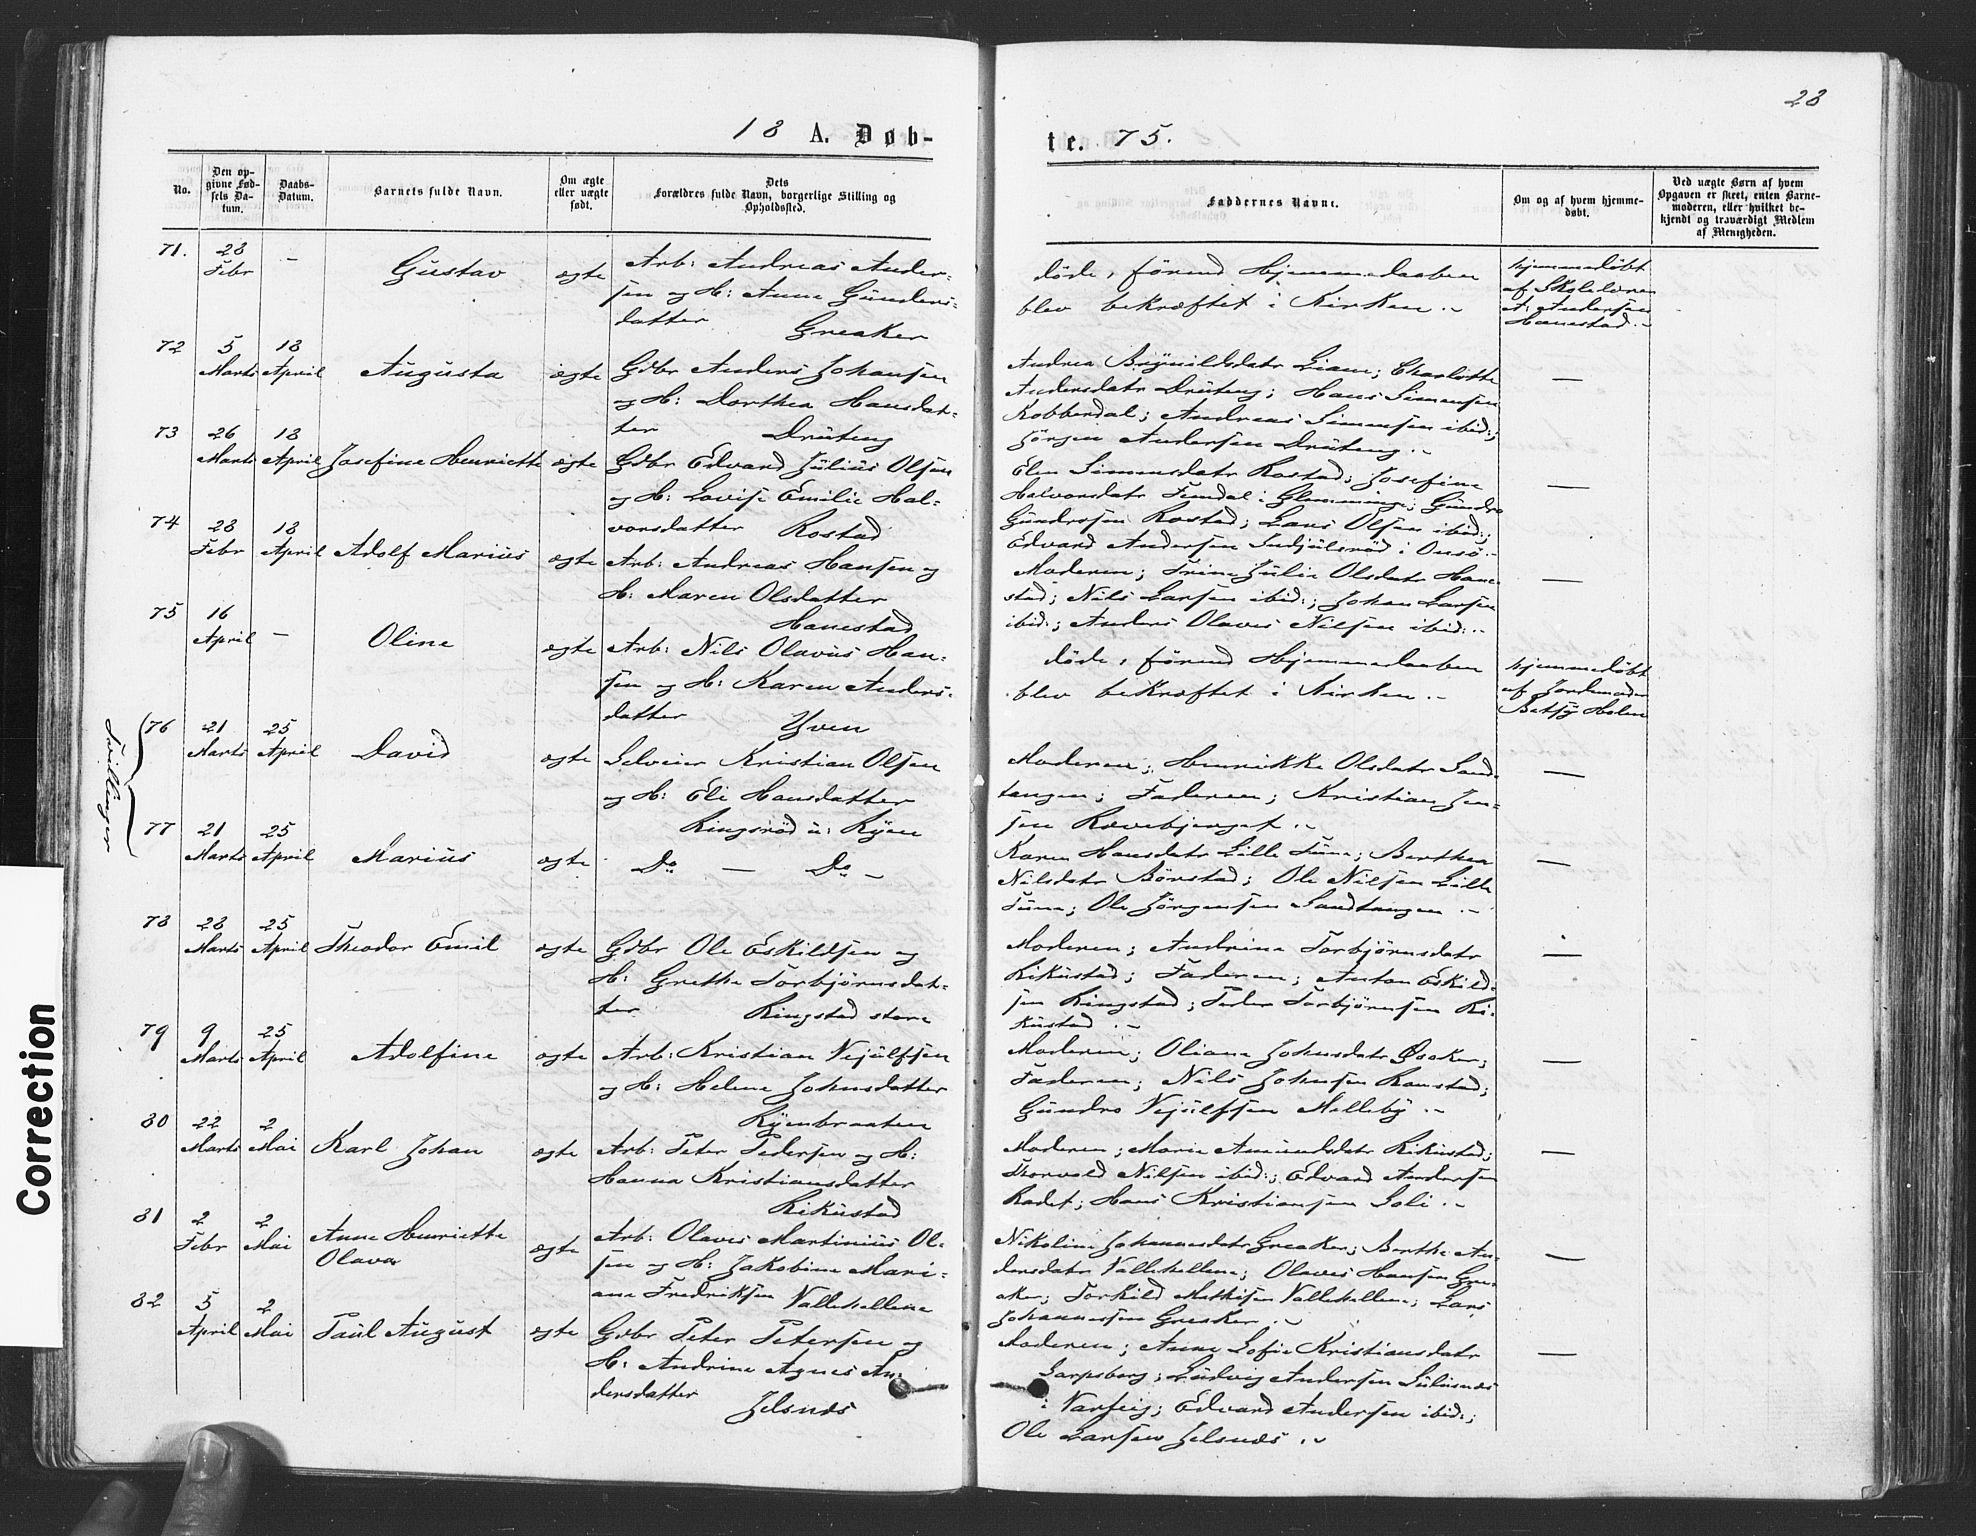 28
18 A. Døb-
te. 75.
No.
Den op-
givne Fød-
sels Da-
tum.
Daabs-
Datum.
Barnets fulde Navn.
Om ægte
eller uægte
født.
Dets
Forældres fulde Navn, borgerlige Stilling og
Opholdssted.
Faddernes Navne.
Om og af hvem hjemme-
døbt.
Ved uægte Børn af hvem
Opgaven er skeet, enten Barne-
moderen, eller hvilket be-
kjendt og troværdigt Medlem
af Menigheden.
71.
28
Febr
-
Gustav
ægte
Arb: Andreas Ander-
sen og H: Anne Gunders-
datter
Greaker
døde, førend Hjemmedaaben
blev bekræftet i Kirken.
Hjemmedøbt
af Skolelærer
A. Andersen
Hanestad.
72
5
Marts
18
April
Augusta
ægte
Gdbr Anders Johansen
og H: Dorthea Hansdat-
ter
Drüteng
Andrea Brynildsdatr Lian; Charlotte
Andersdatr Drüteng; Hans Simensen
Kobberdal; Andreas Simensen ibid:;
Jörgen Andersen Drüteng.
—
73
26
Marts
18
April
Josefine Henriette
ægte
Gdbr Edvard Julius Olsen
og H: Lovise Emilie Hal-
vorsdatter
Rostad
Elen Simensdatr Rostad; Josefine
Halvorsdatr Femdal i Glemminge; Gundro
Gundrosen Rostad; Lars Olsen ibid:;
Edvard Andersen Indjulsröd i Onsö.
—
74
28
Febr
18
April
Adolf Marius
ægte
Arb: Andreas Hansen og
H: Maren Olsdatter
Hanestad
Moderen; Trine Julie Olsdatr Hane-
stad; Nils Larsen ibid:; Johan Larsen
ibid:; Anders Olaves Nilsen ibid:
—
75
16
April
-
Oline
ægte
Arb: Nils Olavus Han-
sen og H: Karen Anders-
datter
Yven
døde, førend Hjemmedaaben
blev bekræftet i Kirken.
hjemmedøbt
af Jordemoder
Betsy Holm
Tvillinger
76
21
Marts
25
April
David
ægte
Selveier Kristian Olsen
og H: Eli Hansdatter
Ringsröd u: Ryen
Moderen; Henrikke Olsdatr Sand-
tangen; Faderen; Kristian Jen-
sen Rævebjerget.
—
77
21
Marts
25
April
Marius
ægte
Do — Do -
Karen Hansdatr Lille Tune; Berthea
Nilsdatr Börstad; Ole Nilsen Lille
Tune; Ole Jörgensen Sandtangen.
—
78
28
Marts
25
April
Theodor Emil
ægte
Gdbr Ole Eskildsen og
H: Grethe Torbjörnsdat-
ter
Ringstad store
Moderen; Andrine Torbjörnsdatr
Rikustad; Faderen; Anton Eskild-
sen Ringstad; Peder Torbjörnsen Ri-
kustad.
—
79
9
Marts
25
April
Adolfine
ægte
Arb: Kristian Vejulfsen
og H: Helene Johnsdatter
Ryenbraaten
Moderen; Oliane Johnsdatr
Faderen; Nils Johnsen
Gundro Vejulfsen Melleby.
—
80
22
Marts
2
Mai
Karl Johan
ægte
Arb: Peter Pedersen og H:
Hanna Kristiansdatter
Rikustad
Moderen; Marie Amundsdatr Rikustad;
Thorvald Nilsen ibid:; Edvard Andersen
Hans Kristiansen Soli.
—
81
2
Febr
2
Mai
Anne Henriette
Olava
ægte
Arb: Olaves Martinius Ol-
sen og H: Jakobine Mari-
ane Fredriksen Vallehellene
Nikoline Johannesdatr Greaker; Berthe An-
dersdatr Vallehellene; Olaves Hansen Gre-
aker; Torkild Mathisen Vallehellene; Lars
Johannessen Greaker.
—
82
5
April
2
Mai
Paul August
ægte
Gdbr Peter Petersen og
H: Andrine Agnes An-
dersdatter
Jelsnæs
Moderen; Anne Sofie Kristiansdatr
Sarpsborg; Ludvig Andersen
i Varteig; Edvard Andersen ibid:;
Ole Larsen Jelsnæs.
—
Correction